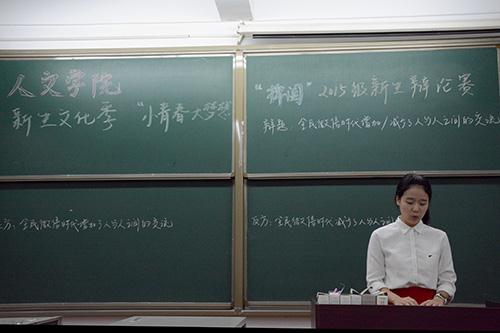 人文学院
新生文化季 “小青春大梦想
“捭阖”2015级新生辩论赛
辩题：全民微信时代增加/减少了人与人之间的交流
方：全民微信时代增加了人与人之间的交流
反方：全民微信时代减少了人与人之间